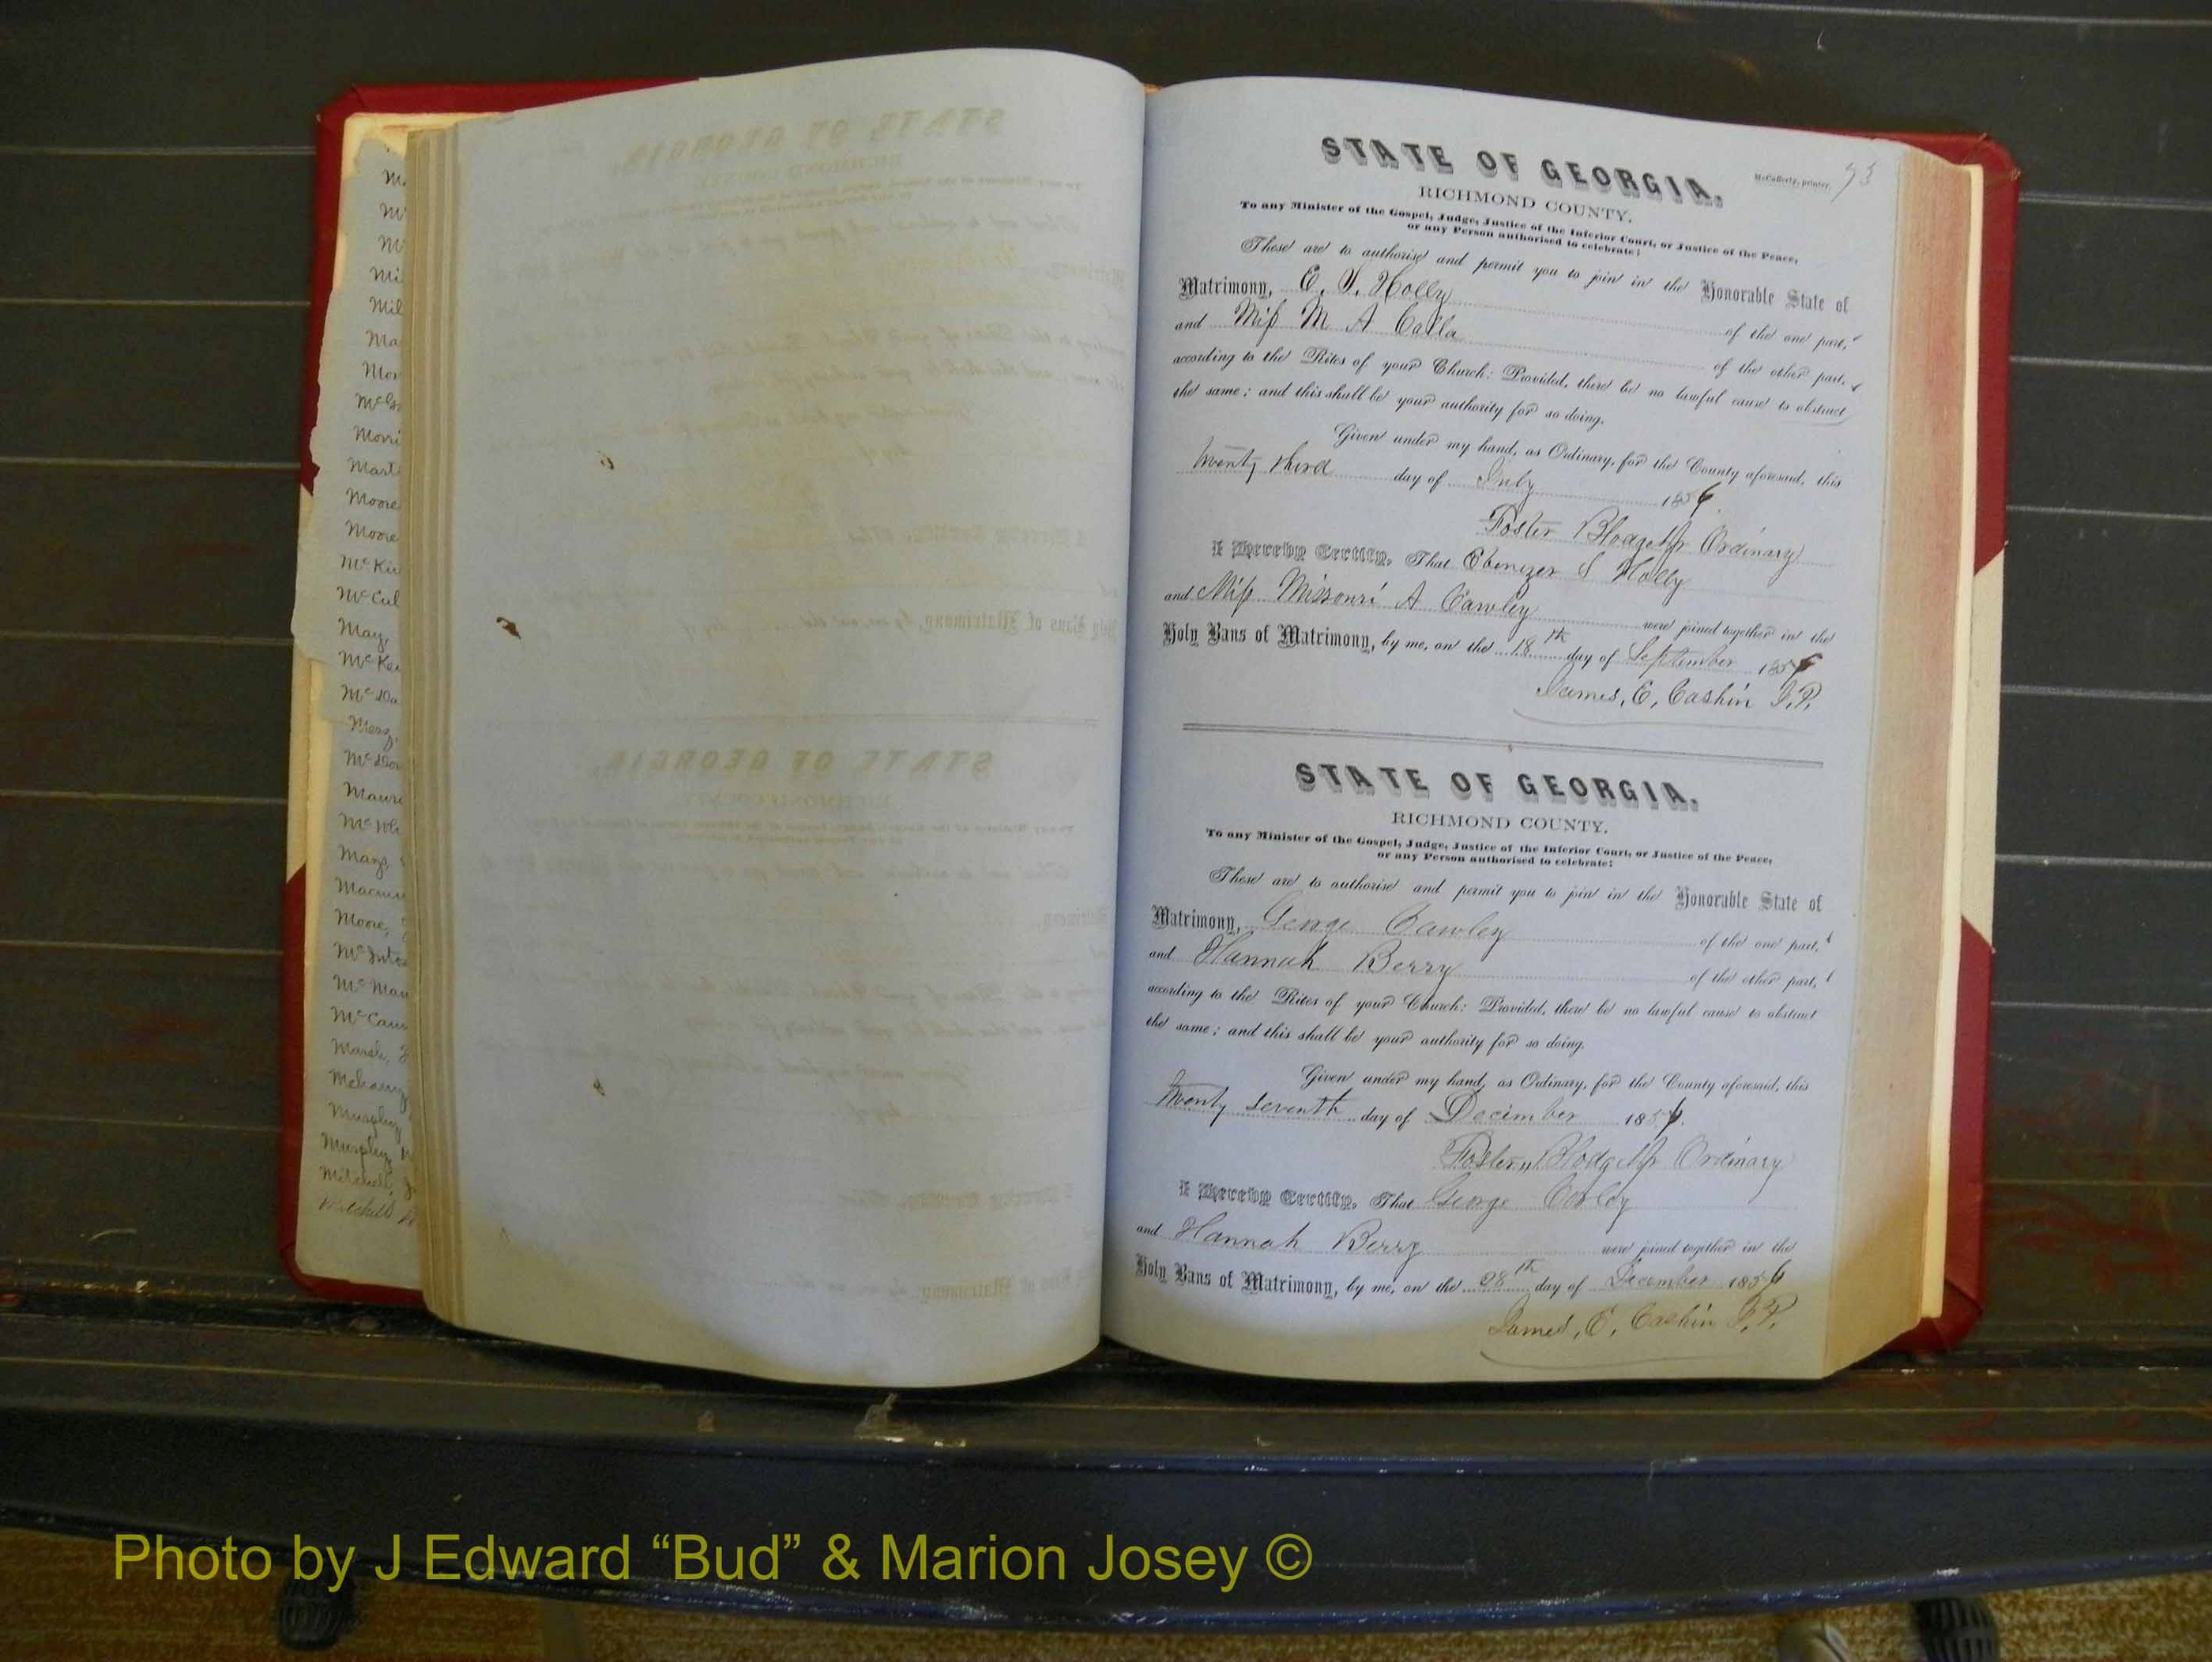 McCafferty, printer.
STATE OF GEORGIA,
RICHMOND COUNTY.
To any Minister of the Gospel, Judge, Justice of the Inferior Court, or Justice of the Peace,
or any Person authorised to celebrate:
These are to authorise and permit you to join in the Honorable State of
Matrimony, E. S. Holly of the one part,
and Miss M A Calla of the other part,
according to the Rites of your Church: Provided, there be no lawful cause to obstruct
the same; and this shall be your authority for so doing.
Given under my hand, as Ordinary, for the County aforesaid, this
twenty third day of July 1856
Foster Blodget Jr Ordinary
I Hereby Certify, That Ebenezer S Holly
and Miss Missouri A Cawley were joined together in the
Holy Bans of Matrimony, by me, on the 18th day of September 1856
James, E, Cashin J.P.
STATE OF GEORGIA,
RICHMOND COUNTY.
To any Minister of the Gospel, Judge, Justice of the Inferior Court, or Justice of the Peace,
or any Person authorised to celebrate:
These are to authorise and permit you to join in the Honorable State of
Matrimony, George Cawley of the one part,
and Hannah Berry of the other part,
according to the Rites of your Church: Provided, there be no lawful cause to obstruct
the same; and this shall be your authority for so doing.
Given under my hand, as Ordinary, for the County aforesaid, this
Twenty Seventh day of December 1856.
Foster Blodget Jr Ordinary
I Hereby Certify, That George Corley
and Hannah Berry were joined together in the
Holy Bans of Matrimony, by me, on the 28th day of December 1856
James, E, Cashin J.P.
Moore
Moore
May,
Moore,
Marsh,
Murphy,
Mitchell,
Photo by J Edward “Bud” & Marion Josey ©